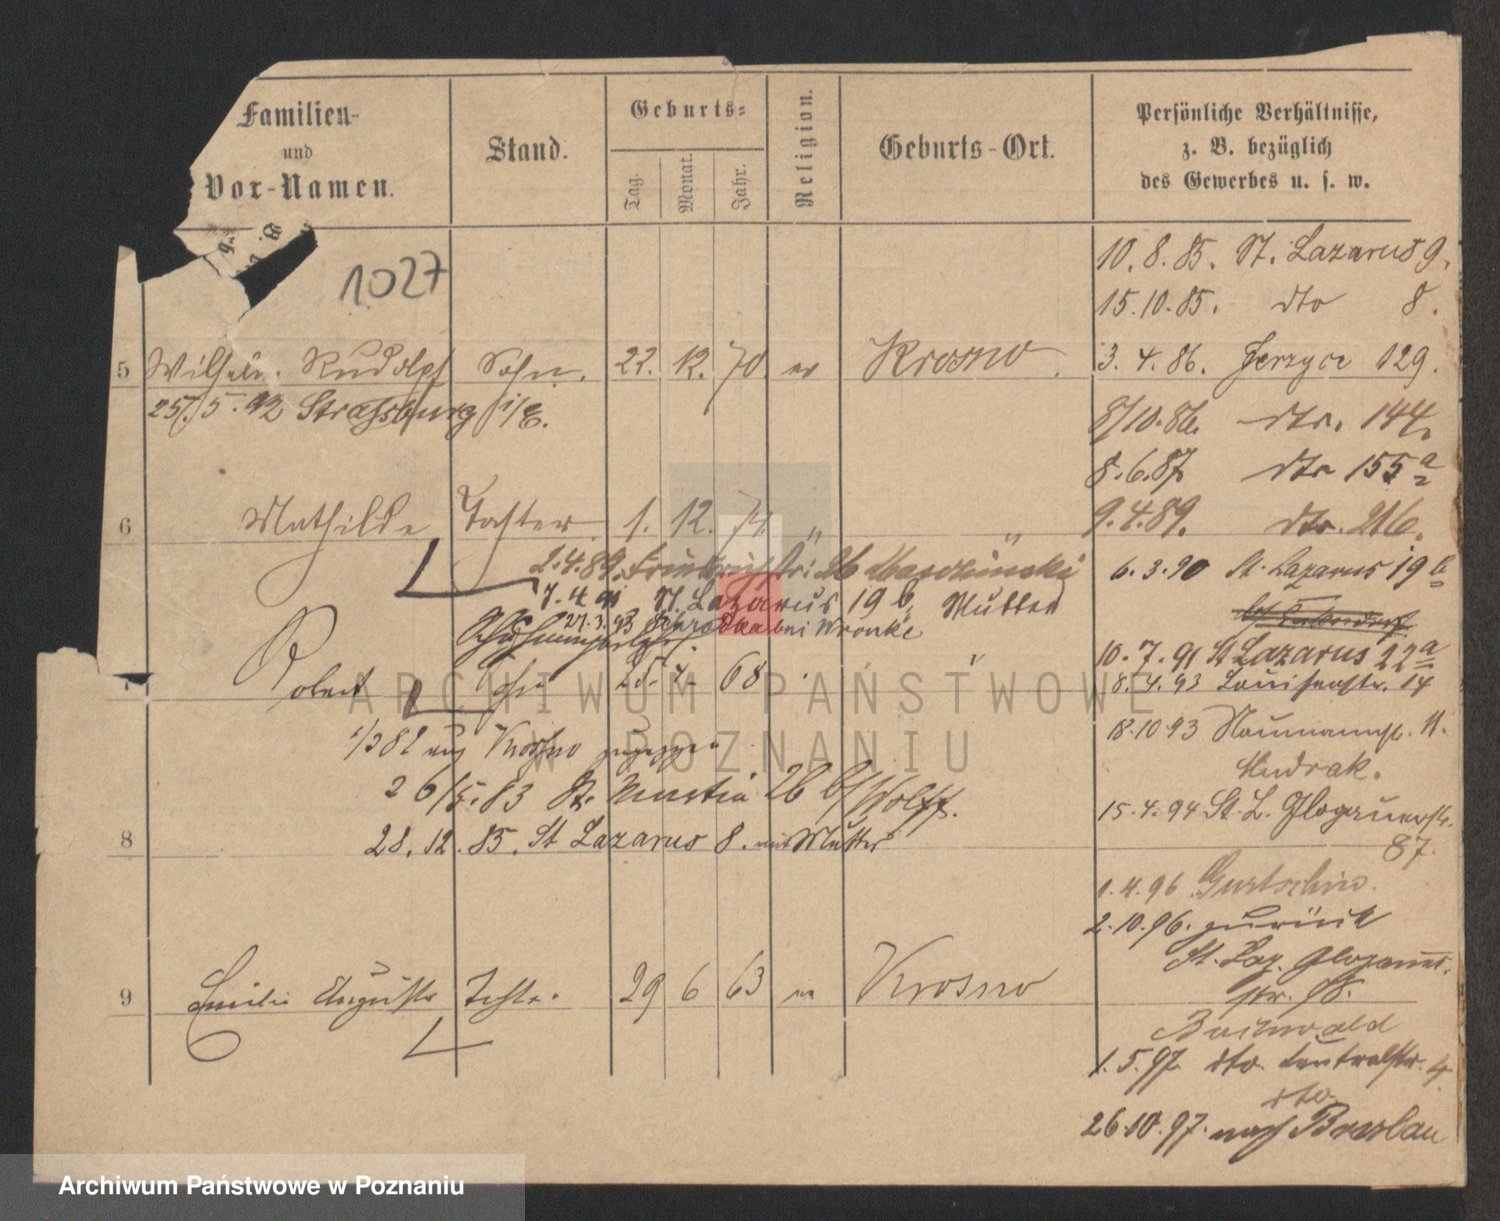 Familien-
und
Vor-Namen.
Stand.
Geburts-
Tag.
Monat.
Jahr.
Religion.
Geburts-Ort.
Persönliche Verhältnisse,
z. B. bezüglich
des Gewerbes u. s. w.
1027
10. 8. 85. St. Lazarus 9.
15. 10. 85. dto 8.
5 Wilhelm Rudolph Sohn. 22. 12. 70. ev Krosno.
3. 4. 86. Jerzyce 129.
25. 5. 92 Strassburg i/E.
8/10. 86. dto. 144.
8. 6. 87 dto 155 a
6 Mathilde Tochter 1. 12. 74. " "
9. 4. 89. dto. 216.
2. 4. 89. 26 Masczinski
6. 3. 90 St. Lazarus 19 b
7. 4. 91 St. Lazarus 19 b, Mutter
27. 3. 93 bei Wronke
10. 7. 91 St Lazarus 22 a
7 Robert Sohn 25. 68
8. 4. 93 Louisenstr. 14
1/3 82 aus Krosno zugezogen
18. 10 93 Naumannstr. 11.
Hudrak.
26/5. 83 St. Martin 26 b/ Wolff.
15. 4. 94 St. L. Glogauerstr.
87.
28. 12. 85. St Lazarus 8. mit Mutter
8
1. 4. 96. Gurtschin.
2. 10. 96. zurück
St. Laz. Glogauer-
str.
9 Emilie Auguste Tochter. 29 6 63 ev Krosno
Buchwald
1. 5. 97. dto. Centralstr. 4.
dto
26. 10. 97. nach Breslau
ARCHIWUM PAŃSTWOWE
W POZNANIU
Archiwum Państwowe w Poznaniu